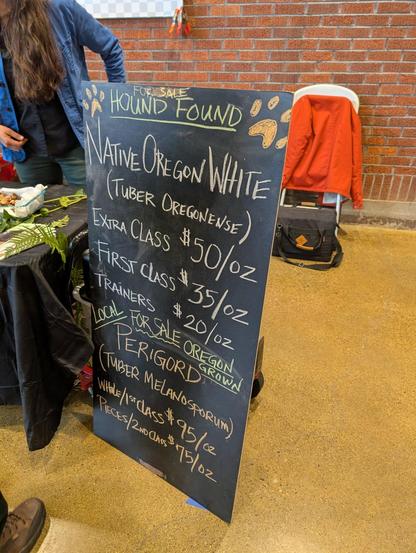 FOR SALE
HOUND FOUND
NATIVE OREGON WHITE
(TUBER OREGONENSE)
EXTRA CLASS $50/OZ
FIRST CLASS $35/OZ
TRAINERS $20/OZ
LOCAL FOR SALE OREGON GROWN
PERIGORD
(TUBER MELANOSPORUM)
WHOLE/1ST CLASS $95/OZ
PIECES/2ND CLASS $75/OZ